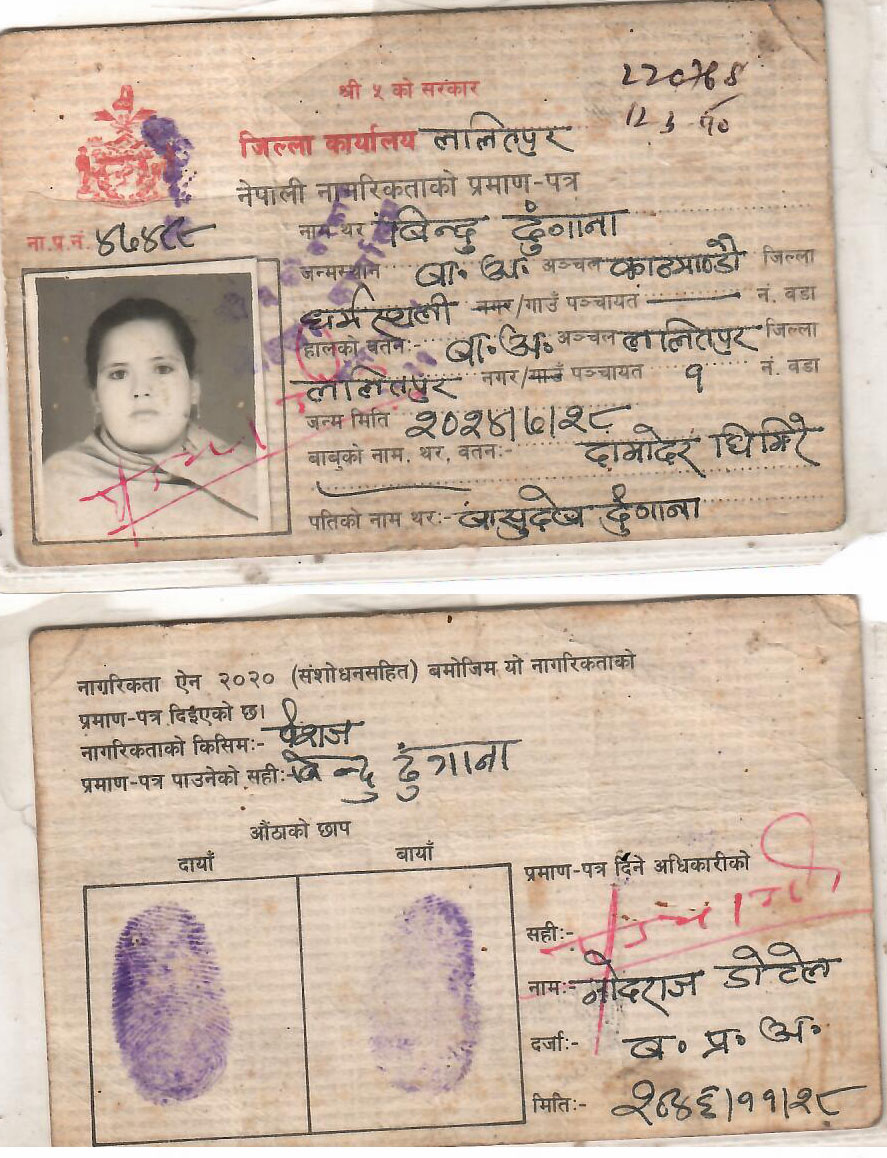 श्री ५ को सरकार
जिल्ला कार्यालय ललितपुर
नेपाली नागरिकताको प्रमाण-पत्र
ना.प.नं.
नाम थर बिन्दु ढुंगाना
जन्मस्थान बा. अं. अञ्चल काठमाण्डौ जिल्ला
धर्मस्थली नगर/गाउँ पञ्चायत — नं. वडा
हालको वतन:- बा. अं. अञ्चल ललितपुर जिल्ला
ललितपुर नगर/गाउँ पञ्चायत १ नं. वडा
जन्म मिति २०२४/७/२८
बाबुको नाम, थर, वतन:- दामोदर घिमिरे
पतिको नाम थर:- बासुदेब ढुंगाना
नागरिकता ऐन २०२० (संशोधनसहित) बमोजिम यो नागरिकताको
प्रमाण-पत्र दिइएको छ।
नागरिकताको किसिम:- वंशज
प्रमाण-पत्र पाउनेको सही:- बिन्दु ढुंगाना
औंठाको छाप
दायाँ बायाँ
प्रमाण-पत्र दिने अधिकारीको
सही:-
नाम:- डोटेल
दर्जा:- ब. प्र. अ.
मिति:- २०४६/११/२८